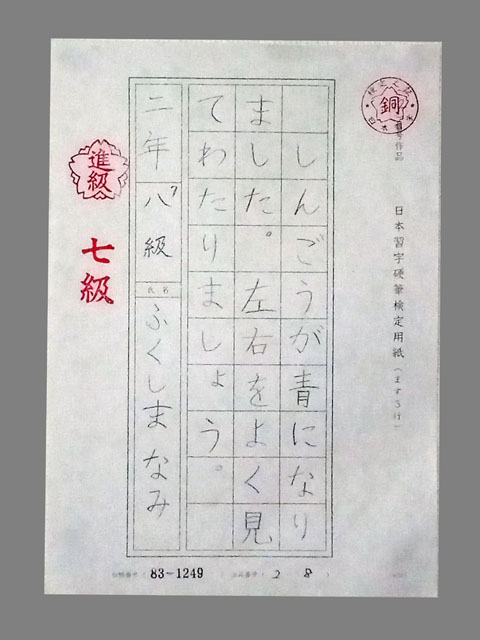 銅
日本習字硬筆検定用紙（ます3行）
しんごうが青になり
ました。左右をよく見
てわたりましょう。
二年 八級 氏名 ふくしま なみ
進級
七級
83-1249
28